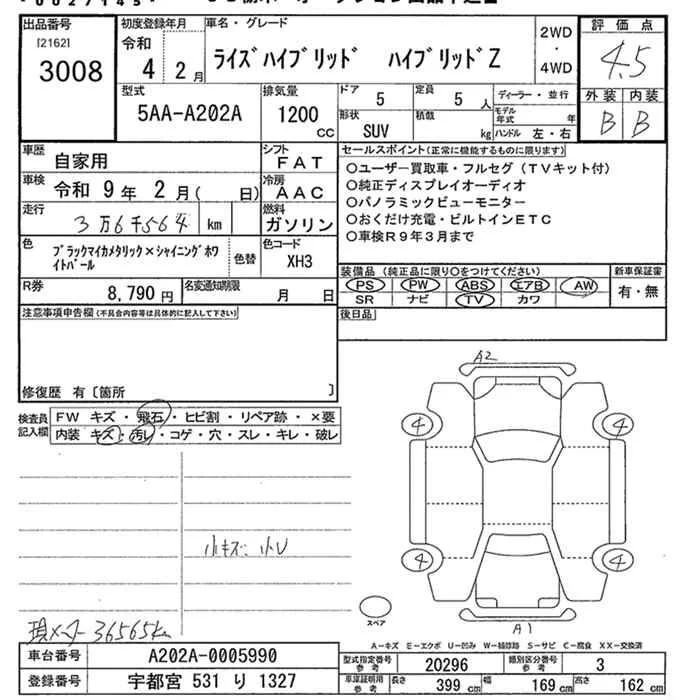 出品番号
[2162]
3008
初度登録年月
令和
4 2月
車名・グレード
ライズハイブリッド ハイブリッドZ
2WD
・
4WD
評価点
4.5
外装 内装
B B
型式
5AA-A202A
排気量
1200
cc
ドア
5
定員
5人
ディーラー・並行
形状
SUV
積載
kg
モデル年式
年
ハンドル 左・右
車歴
自家用
シフト
FAT
車検
令和 9年 2月( 日)
冷房
AAC
走行
3万6千564 km
燃料
ガソリン
色
ブラックマイカメタリック×シャイニングホワ
イトパール
色替
色コード
XH3
R券
8,790円
名変通知期限
月 日
セールスポイント(正常に機能するものに限ります)
○ユーザー買取車・フルセグ(TVキット付)
○純正ディスプレイオーディオ
○パノラミックビューモニター
○おくだけ充電・ビルトインETC
○車検R9年3月まで
装備品(純正品に限り○をつけてください)
PS PW ABS エアB AW
SR ナビ TV カワ
新車保証書
有・無
後日品
注意事項申告欄(不具合内容等は具体的に記入して下さい)
修復歴 有〔箇所 〕
検査員
記入欄
FW キズ・飛石・ヒビ割・リペア跡・×要
内装 キズ・汚レ・コゲ・穴・スレ・キレ・破レ
小キズ・小U
現メーター 36565km
A2
4
4
4
4
A1
スペア
A-キズ E-エクボ U-凹み W-補修跡 S-サビ C-腐食 XX-交換済
車台番号
A202A-0005990
型式指定番号
参考
20296
類別区分番号
参考
3
登録番号
宇都宮 531 り 1327
車庫証明用
参考
長さ
399 cm
幅
169 cm
高さ
162 cm